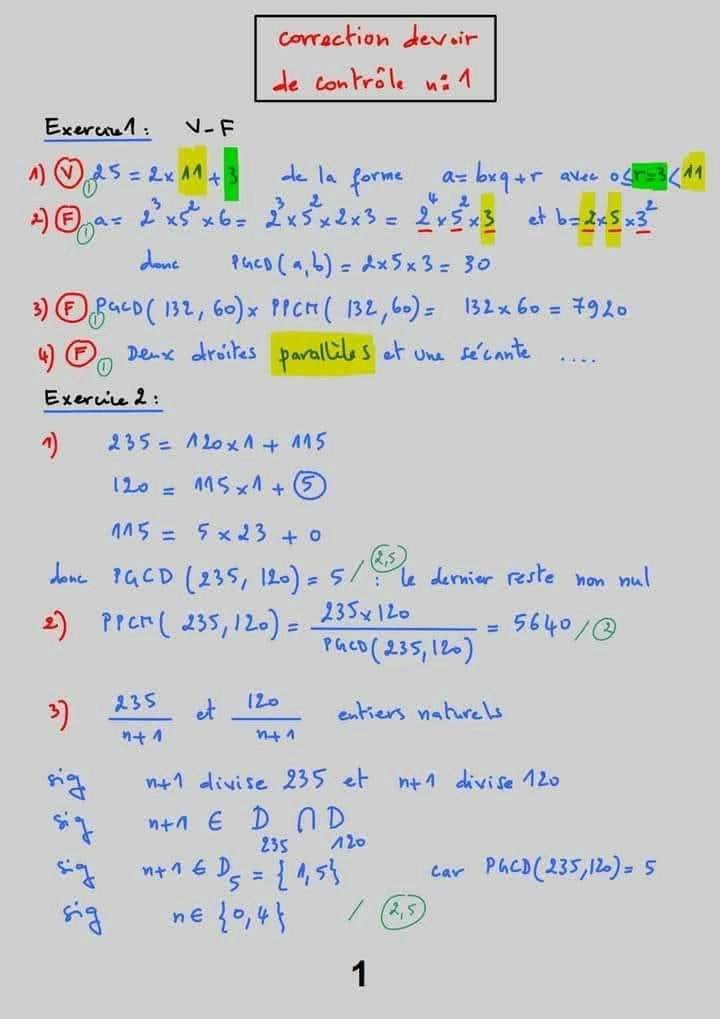 correction devoir
de contrôle n: 1
Exercice 1 : V-F
1) V 1 25 = 2 x 11 + 3 de la forme a = bxq + r avec 0 ≤ r=3 < 11
2) F 1 a = 2³ x 5² x 6 = 2³ x 5² x 2 x 3 = 2⁴ x 5² x 3 et b = 2 x 5 x 3²
donc PGCD (a, b) = 2 x 5 x 3 = 30
3) F 1 PGCD ( 132, 60) x PPCM ( 132, 60) = 132 x 60 = 7920
4) F 1 Deux droites parallèles et une sécante ....
Exercice 2 :
1) 235 = 120 x 1 + 115
120 = 115 x 1 + 5
115 = 5 x 23 + 0
donc PGCD (235, 120) = 5 / 2,5 : le dernier reste non nul
2) PPCM ( 235, 120) = 235 x 120 / PGCD (235, 120) = 5640 / 2
3) 235 / n+1 et 120 / n+1 entiers naturels
sig n+1 divise 235 et n+1 divise 120
sig n+1 ∈ D235 ∩ D120
sig n+1 ∈ D5 = { 1, 5} car PGCD (235, 120) = 5
sig n ∈ {0, 4} / 2,5
1